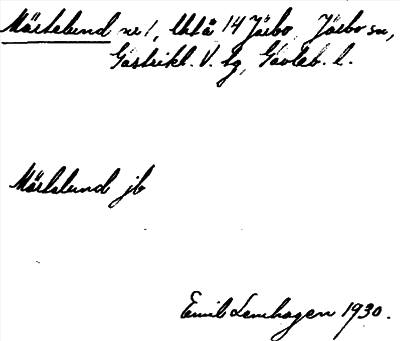 Mårtslund nr 1, Ultå 14 Järbo, Järbo sn,
Gästrikl. V. tg, Gävleb. l.
Mårtslund jb
Emil Lenhagen 1930.